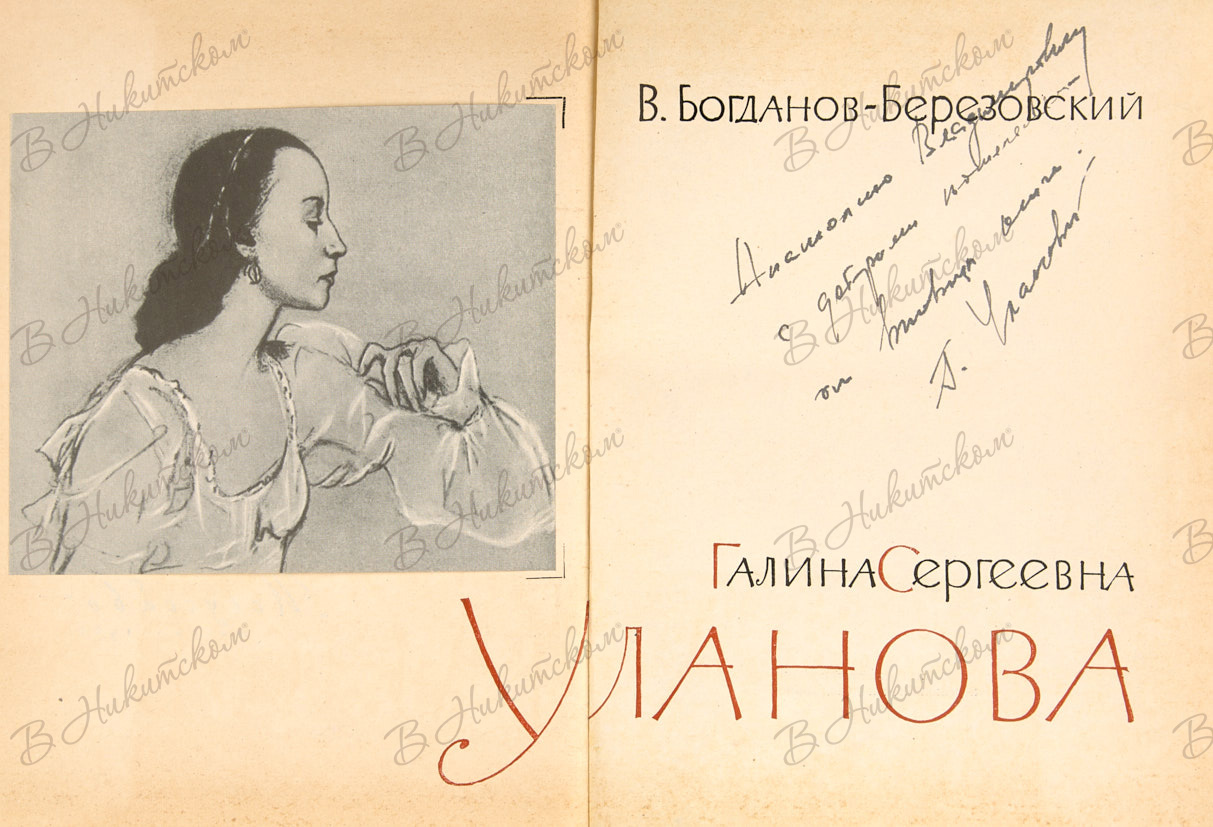 В. Богданов-Березовский
Анатолию Владимировичу
с добрыми пожеланиями
от
Г. Улановой
Галина Сергеевна
Уланова
В Никитском